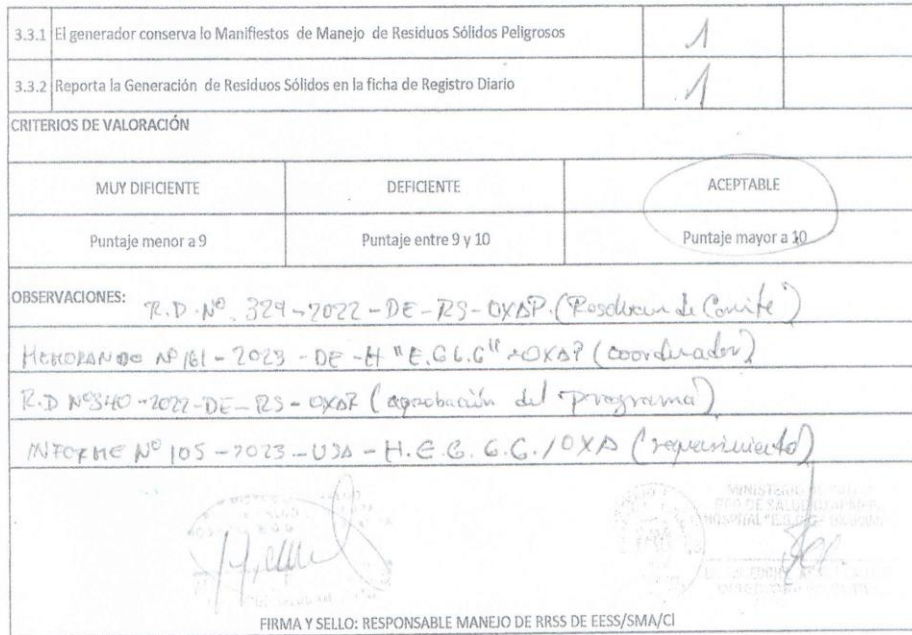 3.3.1 El generador conserva lo Manifiestos de Manejo de Residuos Sólidos Peligrosos 1
3.3.2 Reporta la Generación de Residuos Sólidos en la ficha de Registro Diario 1
CRITERIOS DE VALORACIÓN
MUY DIFICIENTE DEFICIENTE ACEPTABLE
Puntaje menor a 9 Puntaje entre 9 y 10 Puntaje mayor a 10
OBSERVACIONES: R.D. Nº 324-2022-DE-RS-OXAP. (Resolucion de Comite)
MEMORANDO Nº 161-2023-DE-H "E.G.G.G" -OXAP (coordinador)
R.D Nº 340-2022-DE-RS-OXAP (aprobación del programa)
INFORME Nº 105-2023-USA-H.E.G.G.G./OXA (requerimiento)
MINISTERIO DE
RED DE SALUD
HOSPITAL
FIRMA Y SELLO: RESPONSABLE MANEJO DE RRSS DE EESS/SMA/CI